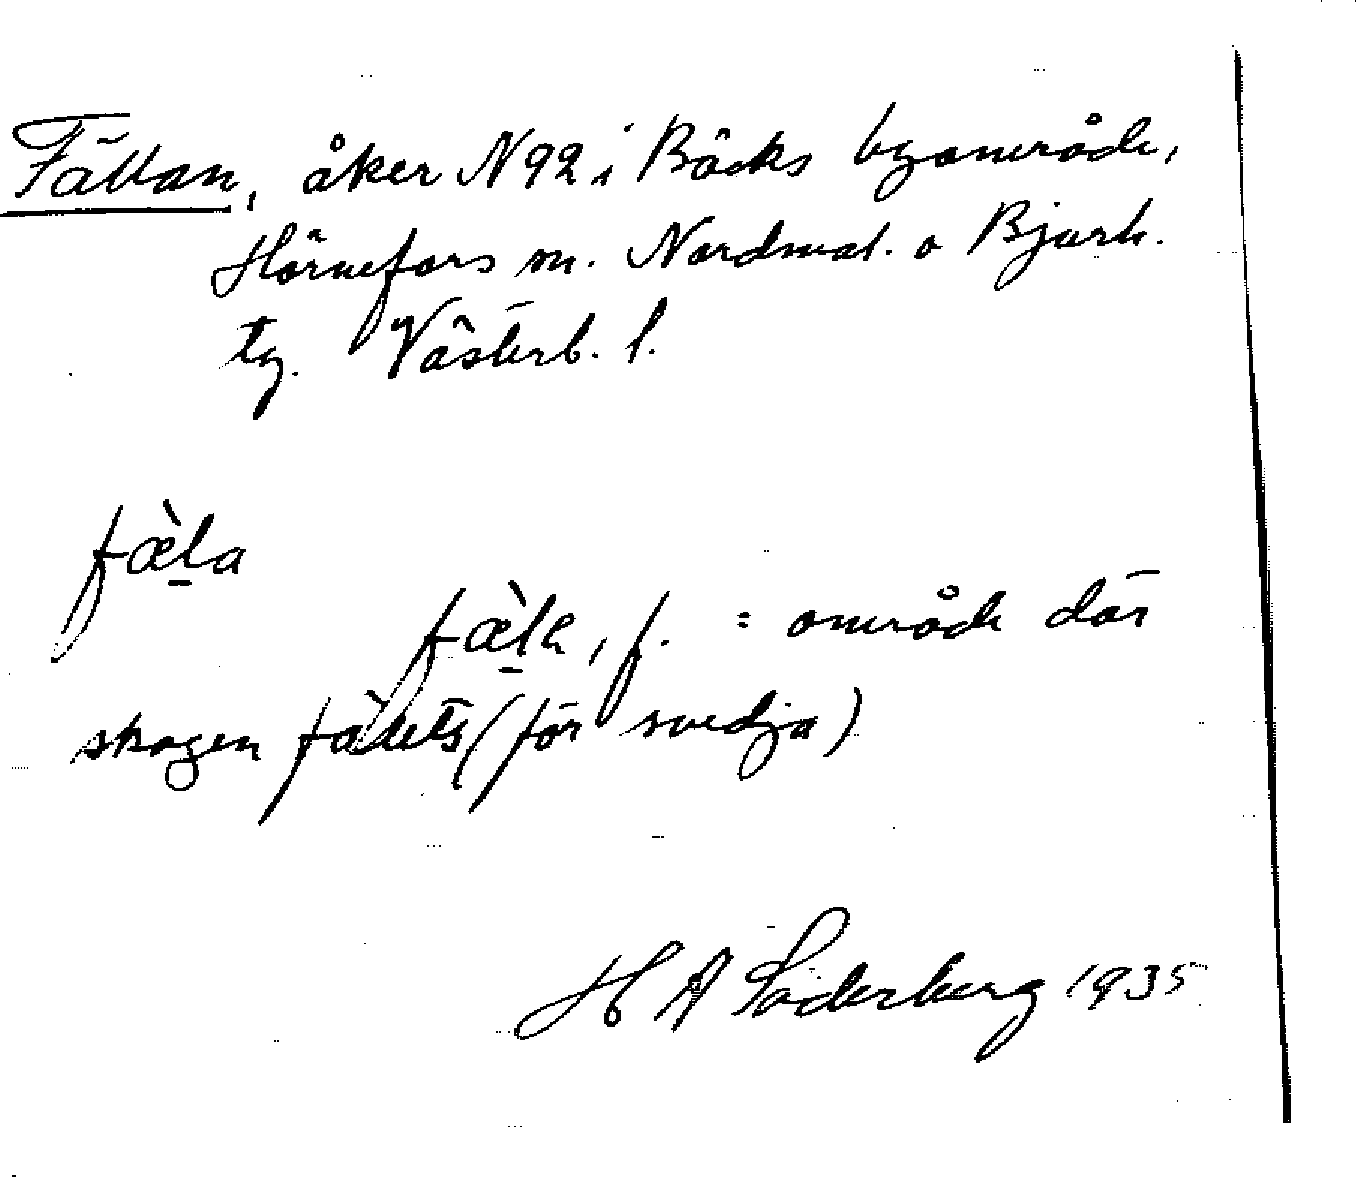 Fällan, åker N 92 i Bäcks byområde,
Hörnefors m. Nordmal. o Bjurh.
tg. Västerb. l.
fæ̀l̲a
fæ̀l̲a, f. = område där
skogen fällets (för svedja)
H A Söderberg 1935